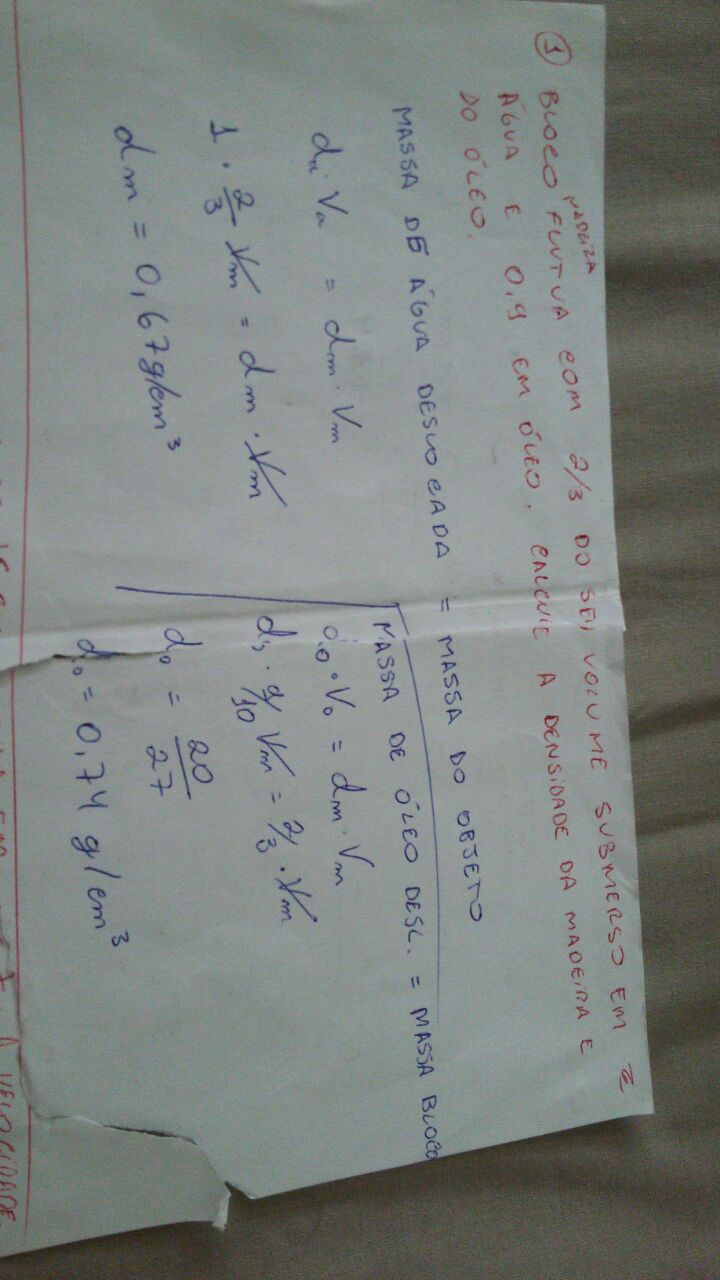 ① BLOCO MADEIRA FLUTUA COM 2/3 DO SEU VOLUME SUBMERSO EM
ÁGUA E 0,9 EM ÓLEO. CALCULE A DENSIDADE DA MADEIRA E
DO ÓLEO.
MASSA DE ÁGUA DESLOCADA = MASSA DO OBJETO
da · Va = dm · Vm
1 · 2/3 Vm = dm · Vm
dm = 0,67 g/cm³
MASSA DE ÓLEO DESL. = MASSA BLOCO
do · Vo = dm · Vm
do · 9/10 Vm = 2/3 · Vm
do = 20/27
do = 0,74 g/cm³
A VELOCIDADE